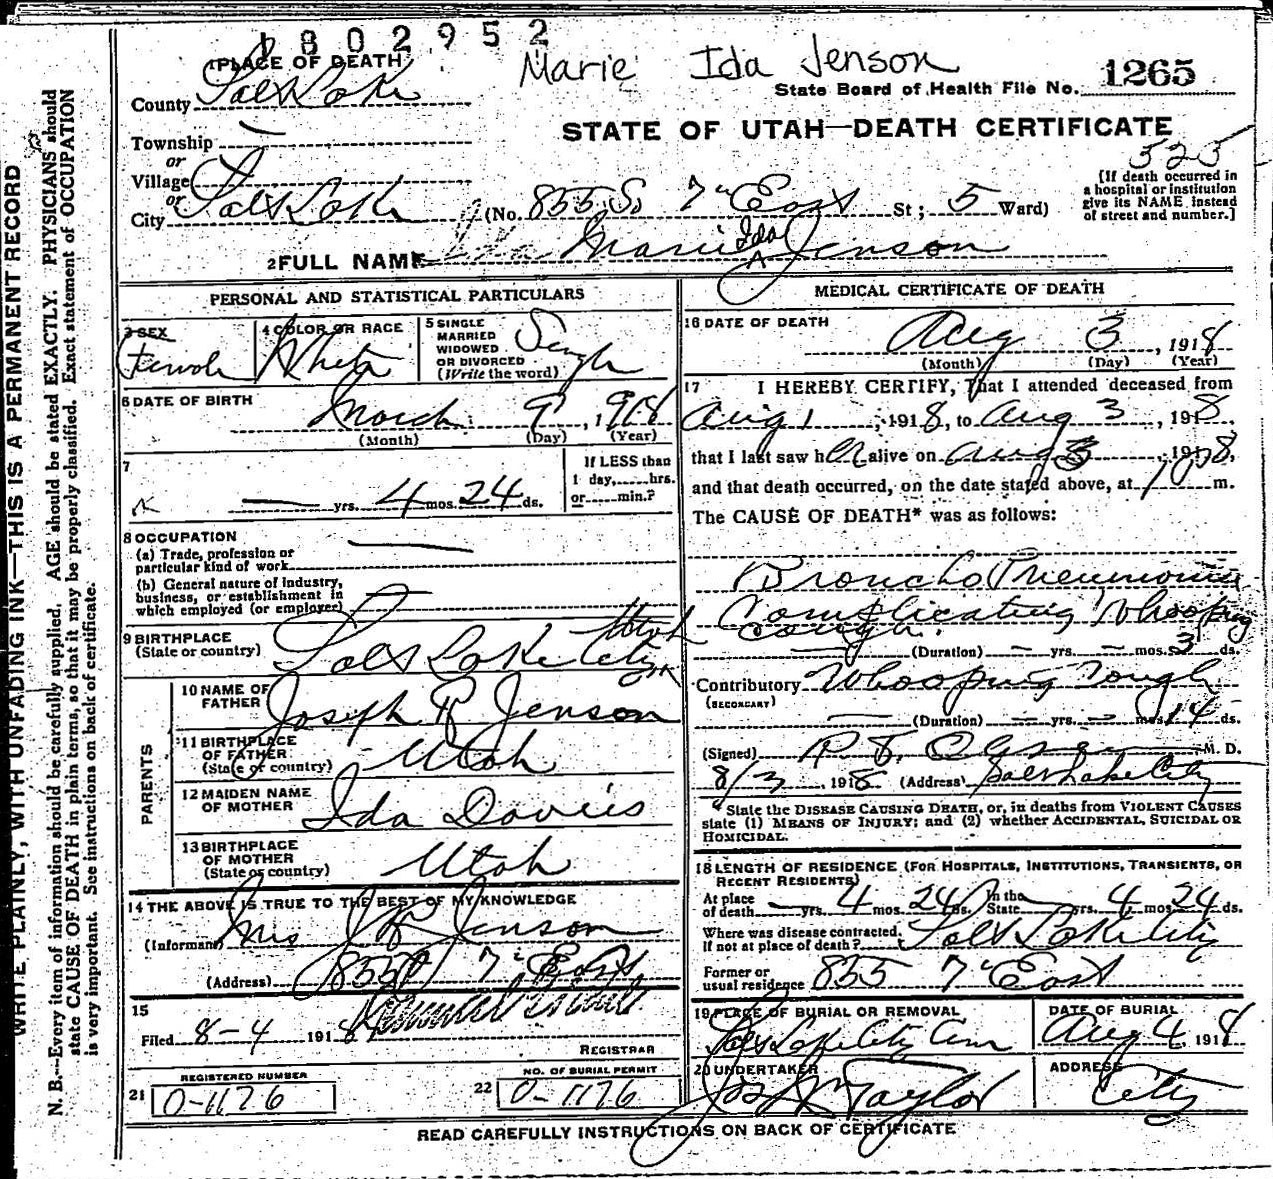 1802952
Marie Ida Jenson
1 PLACE OF DEATH
County Salt Lake
State Board of Health File No. 1265
STATE OF UTAH—DEATH CERTIFICATE
Township —
or
Village
or
City Salt Lake (No. 855 So 7th East St; 5 Ward)
525
[If death occurred in
a hospital or institution
give its NAME instead
of street and number.]
2 FULL NAME Ida Marie Ida Jenson
PERSONAL AND STATISTICAL PARTICULARS
3 SEX
Female
4 COLOR OR RACE
White
5 SINGLE
MARRIED
WIDOWED
OR DIVORCED
(Write the word)
Single
6 DATE OF BIRTH
March 9, 1918
(Month) (Day) (Year)
7
— yrs. 4 mos. 24 ds.
If LESS than
1 day,......hrs.
or......min.?
8 OCCUPATION
(a) Trade, profession or
particular kind of work —
(b) General nature of industry,
business, or establishment in
which employed (or employee)
9 BIRTHPLACE
(State or country)
Salt Lake City Utah
PARENTS
10 NAME OF
FATHER
Joseph R Jenson
11 BIRTHPLACE
OF FATHER
(State or country)
Utah
12 MAIDEN NAME
OF MOTHER
Ida Davis
13 BIRTHPLACE
OF MOTHER
(State or country)
Utah
14 THE ABOVE IS TRUE TO THE BEST OF MY KNOWLEDGE
(Informant) Mrs J R Jenson
(Address) 855 7th East
15
Filed 8-4 1918
REGISTRAR
REGISTERED NUMBER
21 0-1176
NO. OF BURIAL PERMIT
22 0-1176
MEDICAL CERTIFICATE OF DEATH
16 DATE OF DEATH
Aug 3, 1918
(Month) (Day) (Year)
17 I HEREBY CERTIFY, That I attended deceased from
Aug 1, 1918, to Aug 3, 1918,
that I last saw her alive on Aug 3, 1918,
and that death occurred, on the date stated above, at 10 P m.
The CAUSE OF DEATH* was as follows:
Broncho Pneumonia
Complicating Whooping
Cough.
— (Duration) — yrs. — mos. 3 ds.
Contributory Whooping Cough
(SECONDARY)
— (Duration) — yrs. — mos. 14 ds.
(Signed) M. D.
8/3, 1918 (Address) Salt Lake City
* State the DISEASE CAUSING DEATH, or, in deaths from VIOLENT CAUSES
state (1) MEANS OF INJURY; and (2) whether ACCIDENTAL, SUICIDAL OR
HOMICIDAL.
18 LENGTH OF RESIDENCE (FOR HOSPITALS, INSTITUTIONS, TRANSIENTS, OR
RECENT RESIDENTS)
At place
of death — yrs. 4 mos. 24 ds. In the
State — yrs. 4 mos. 24 ds.
Where was disease contracted,
if not at place of death? Salt Lake City
Former or
usual residence 855 7th East
19 PLACE OF BURIAL OR REMOVAL
Salt Lake City Cem
DATE OF BURIAL
Aug 4, 1918
20 UNDERTAKER
Jos Wm Taylor
ADDRESS
City
READ CAREFULLY INSTRUCTIONS ON BACK OF CERTIFICATE
WRITE PLAINLY, WITH UNFADING INK—THIS IS A PERMANENT RECORD
N. B.—Every item of information should be carefully supplied. AGE should be stated EXACTLY. PHYSICIANS should
state CAUSE OF DEATH in plain terms, so that it may be properly classified. Exact statement of OCCUPATION
is very important. See instructions on back of certificate.